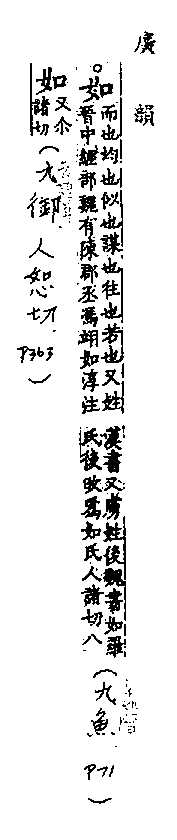 廣韻
。如
而也均也似也謀也往也若也又姓
晉中經部魏有陳郡丞馮翊如淳注
漢書又虜姓後魏書如羅
氏後改爲如氏人諸切八
(九魚 P71)
如
又尒
諸切
(九御 人恕切 P363)